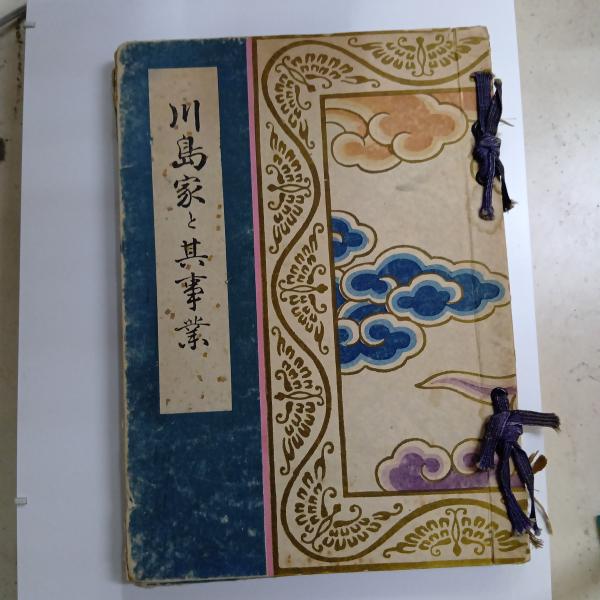 川島家と其事業